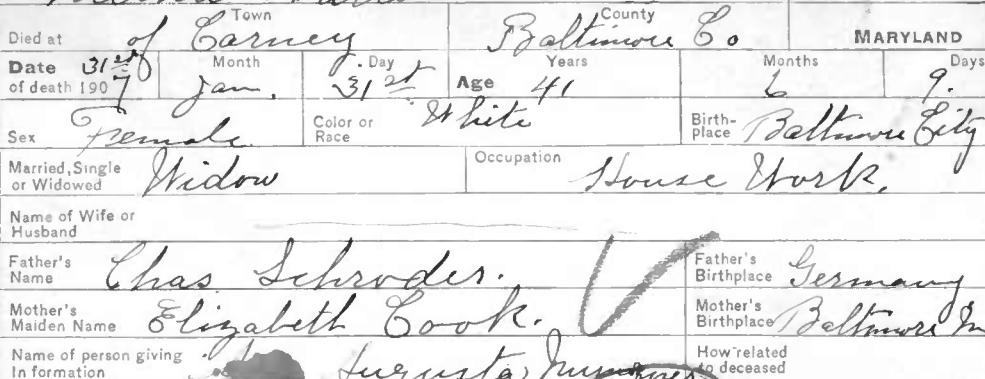 Town County
Died at of Carney Baltimore Co MARYLAND
Date 31st Month Day Years Months Days
of death 1907 Jan. 31st Age 41 6 9.
Sex Female Color or Race White Birth-place Baltimore City
Married, Single or Widowed Widow Occupation House Work.
Name of Wife or Husband
Father's Name Chas Schroder. Father's Birthplace Germany
Mother's Maiden Name Elizabeth Cook. Mother's Birthplace Baltimore M
Name of person giving In formation Augusta How related to deceased